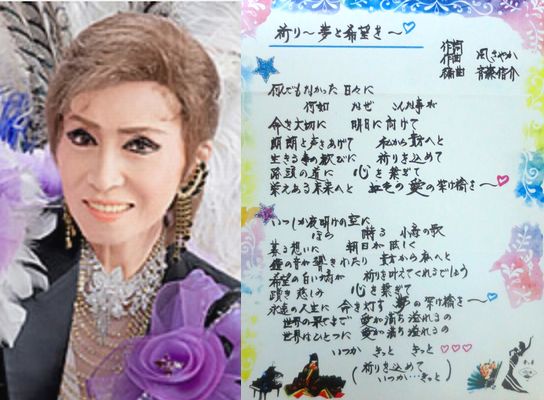 祈り～夢と希望を～
作詞
作曲 風さやか
編曲 斉藤信介
何んでもなかった 日々に
何故 なぜ こんな事が
命を大切に 明日に向けて
朗朗と声をあげて 私から貴方へと
生きる事の歓びに 祈りを込めて
旅頭の道に 心を繋ぎて
栄えある未来へと 虹色の愛の架け橋を～
いつしか夜明けの空に
ほら 囀る 小鳥の歌
募る想いに 朝日が眩しく
鐘の音が響きわたり 貴方から私へと
希望の白い鳩が 祈りを叶えてくれるでしょう
嘆き悲しみ 心を繋ぎて
永遠の人生に 命を灯す 夢の架け橋を～
世界の果てまで 愛が満ち溢れるの
世界はひとつに 愛が満ち溢れるの
いつか きっと きっと
(祈りを込めて
いつか…きっと)